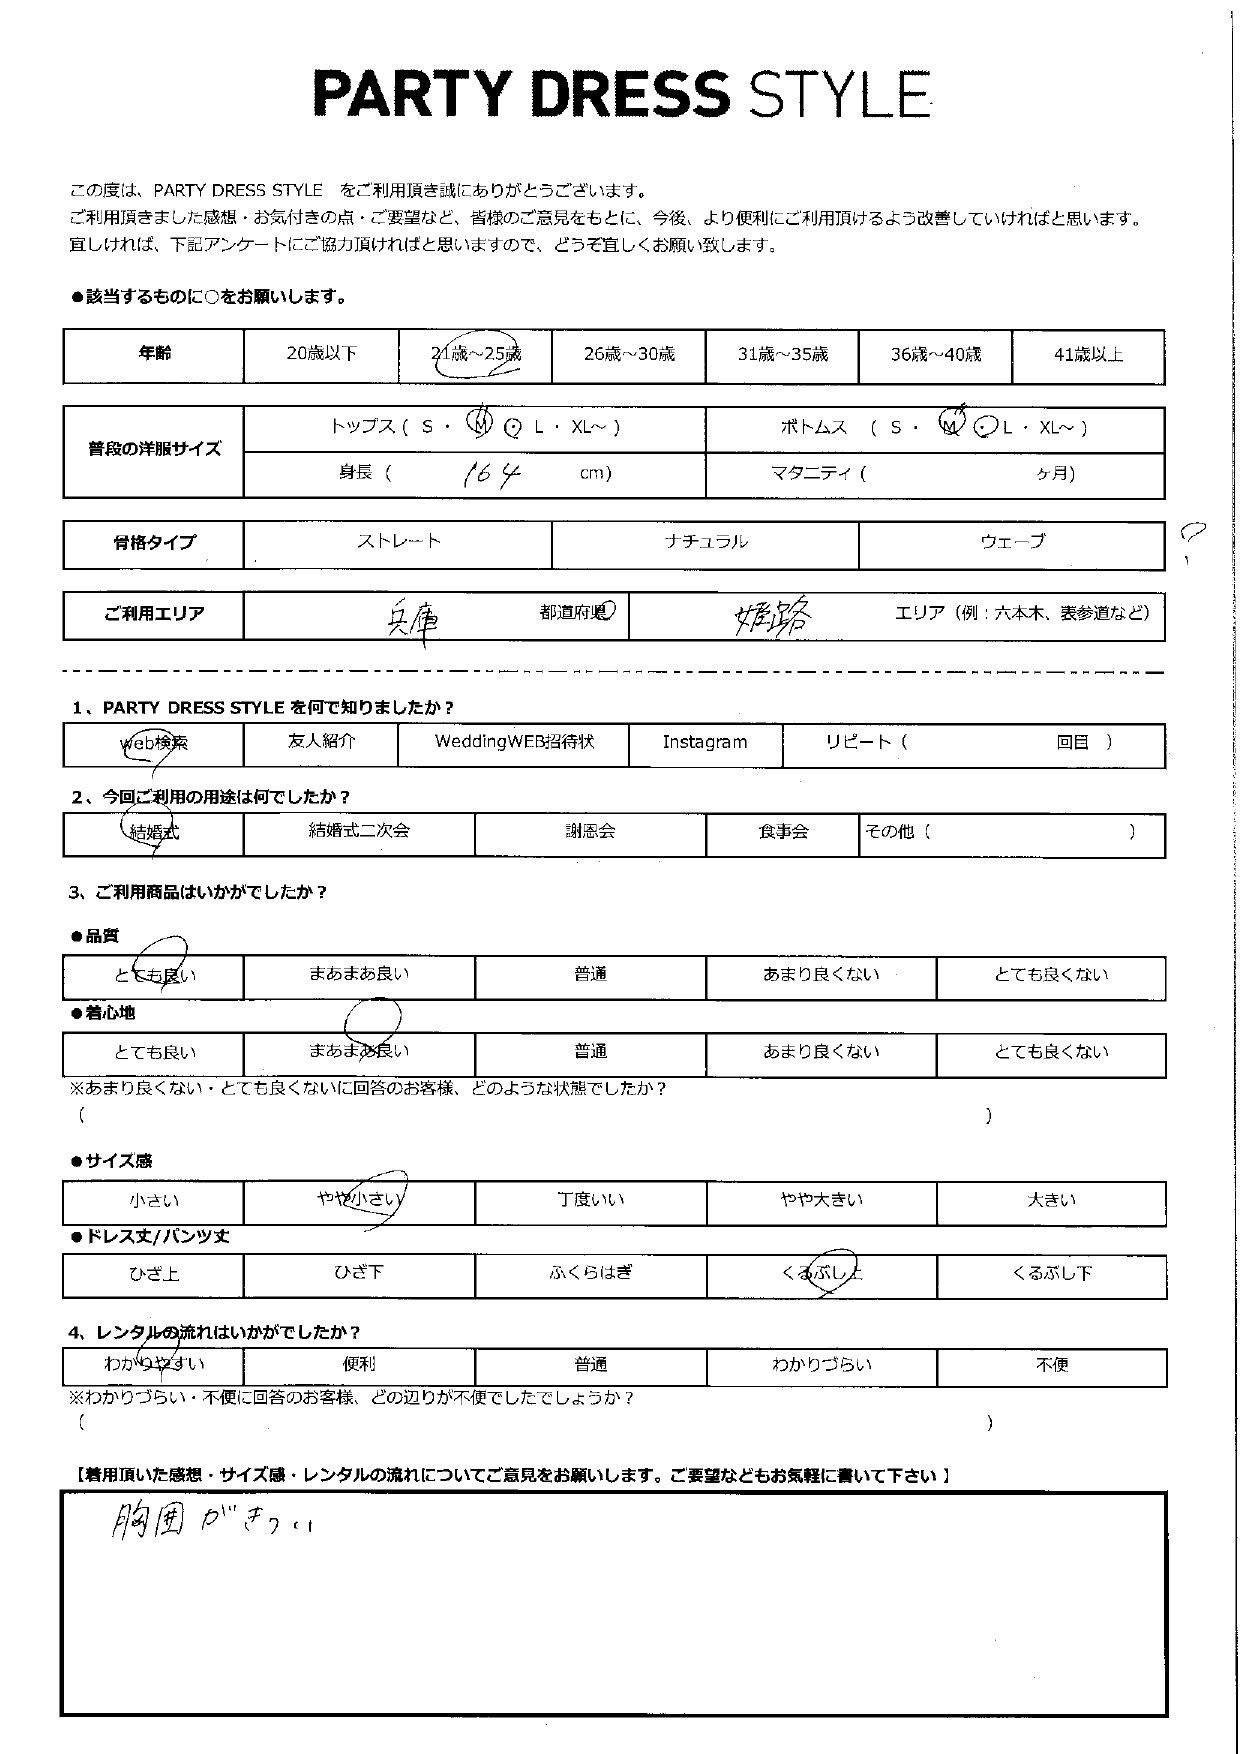 PARTY DRESS STYLE
この度は、PARTY DRESS STYLE　をご利用頂き誠にありがとうございます。
ご利用頂きました感想・お気付きの点・ご要望など、皆様のご意見をもとに、今後、より便利にご利用頂けるよう改善していければと思います。
宜しければ、下記アンケートにご協力頂ければと思いますので、どうぞ宜しくお願い致します。
●該当するものに○をお願いします。
年齢 20歳以下 21歳～25歳 26歳～30歳 31歳～35歳 36歳～40歳 41歳以上
普段の洋服サイズ トップス ( S ・ M ・ L ・ XL～ ) ボトムス ( S ・ M ・ L ・ XL～ )
身長 ( 164 cm) マタニティ ( ヶ月)
骨格タイプ ストレート ナチュラル ウェーブ ?
ご利用エリア 兵庫 都道府県 姫路 エリア（例：六本木、表参道など）
1、PARTY DRESS STYLE を何で知りましたか？
web検索 友人紹介 WeddingWEB招待状 Instagram リピート ( 回目 )
2、今回ご利用の用途は何でしたか？
結婚式 結婚式二次会 謝恩会 食事会 その他 ( )
3、ご利用商品はいかがでしたか？
●品質
とても良い まあまあ良い 普通 あまり良くない とても良くない
●着心地
とても良い まあまあ良い 普通 あまり良くない とても良くない
※あまり良くない・とても良くないに回答のお客様、どのような状態でしたか？
( )
●サイズ感
小さい やや小さい 丁度いい やや大きい 大きい
●ドレス丈/パンツ丈
ひざ上 ひざ下 ふくらはぎ くるぶし上 くるぶし下
4、レンタルの流れはいかがでしたか？
わかりやすい 便利 普通 わかりづらい 不便
※わかりづらい・不便に回答のお客様、どの辺りが不便でしたでしょうか？
( )
【着用頂いた感想・サイズ感・レンタルの流れについてご意見をお願いします。ご要望などもお気軽に書いて下さい】
胸囲がきつい